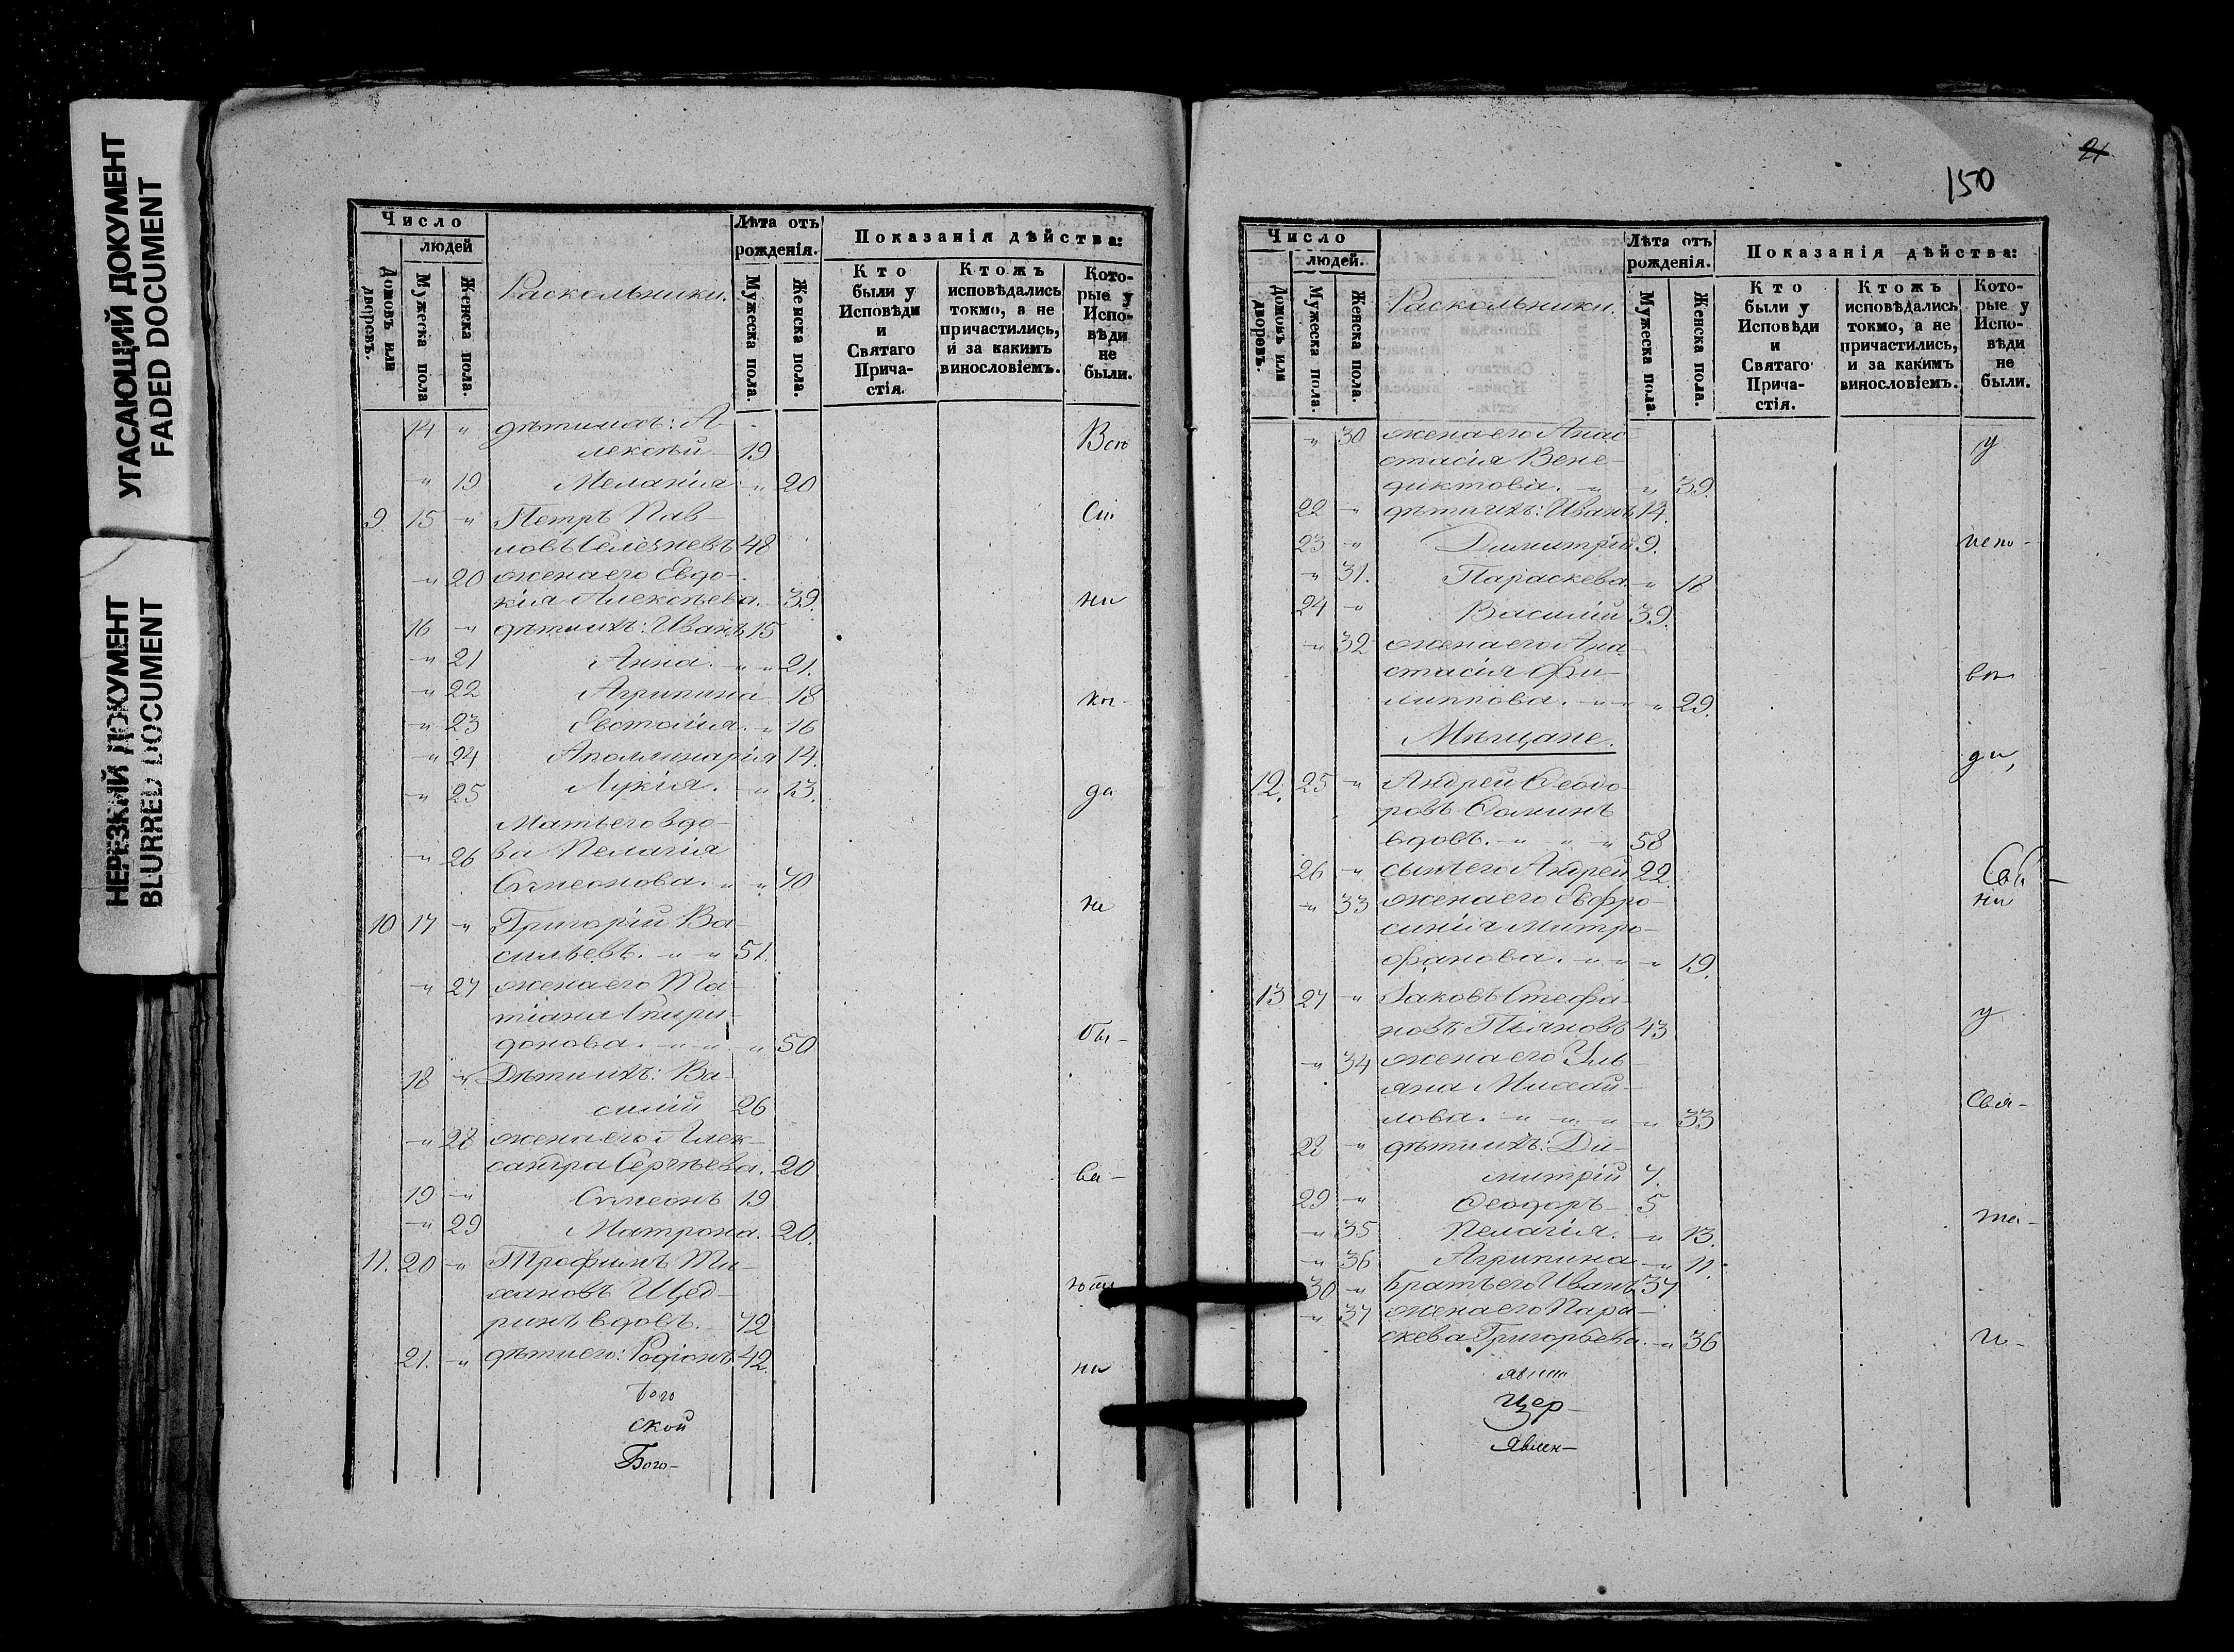 УГАСАЮЩИЙ ДОКУМЕНТ
FADED DOCUMENT
НЕРЕЗКИЙ ДОКУМЕНТ
BLURRED DOCUMENT
Число
людей
Домовъ или дворовъ.
Мужеска пола
Женска пола.
Раскольники.
Лѣта отъ рожденія.
Мужеска пола.
Женска пола.
Показанія дѣйства:
Кто были у Исповѣди и Святаго Прича-стія.
Ктожъ исповѣдались токмо, а не причастились, и за какимъ винословіемъ.
Кото-рые у Испо-вѣди не были.
14 " дѣти ихъ: А-
лексѣй 19
" 19 Меланія " 20
9 15 " Петръ Пав-
ловъ Селезневъ 48
" 20 жена его Евдо-
кія Алексѣева. 39.
16 " дѣти ихъ: Иванъ 15
" 21 Анна. " " 21.
" 22 Агрипина 18
" 23 Евстолія. " 16
" 24 Аполлинарія 14.
" 25 Лукія. " 13.
Мать его вдо-
" 26 ва Пелагія
Симеонова. " " 70
10 17 " Григорій Ва-
сильевъ. " " 51.
" 27 жена его Та-
тіана Спири-
донова. " " " 50
18 " Дѣти ихъ: Ва-
силій 26
" 28 жена его Алек-
сандра Сергѣева. 20
19 " Симеонъ 19
" 29 Матрона. 20.
11. 20 " Трофимъ Ти-
хановъ Щед-
ринъ вдовъ. 72
21. " дѣти его: Родіонъ 42.
Всѣ
сіи
ни
ко-
да
не
бы-
ва-
ютъ
ни
Бого
ской
Бого-
21
150
Число
людей.
Домовъ или дворовъ.
Мужеска пола.
Женска пола.
Раскольники.
Лѣта отъ рожденія.
Мужеска пола.
Женска пола.
Показанія дѣйства:
Кто были у Исповѣди и Святаго Прича-стія.
Ктожъ исповѣдались токмо, а не причастились, и за какимъ винословіемъ.
Кото-рые у Испо-вѣди не были.
" 30 жена его Анас
стасія Вене-
диктова. " " 39.
22 " дѣти ихъ: Иванъ 14.
23 " Димитрій 9.
" 31. Параскева. " 18
24 " Василій 39.
" 32 жена его Ана-
стасія Фи-
липпова. " " " 29.
Мѣщане.
12. 25 " Андрей Ѳеодо-
ровъ Ѳоминъ
вдовъ. " " " 58
26 " сынъ его Андрей 22.
" 33 жена его Евфро-
синія Митро-
фанова. " " " 19.
13 27 " Іаковъ Стефа-
новъ Пьяновъ 43
" 34 жена его Уль-
яна Михай-
лова. " " " " 33
28 " дѣти ихъ: Ди-
митрій 7.
29 " Ѳеодоръ 5
" 35 Пелагія. " 13.
" 36 Агрипина " 11.
30 " Братъ его Иванъ 37
" 37 жена его Пара-
скева Григорьева. " 36
у
испо-
вѣ
ди,
ни
у
Свя-
та-
цер-
явлен-